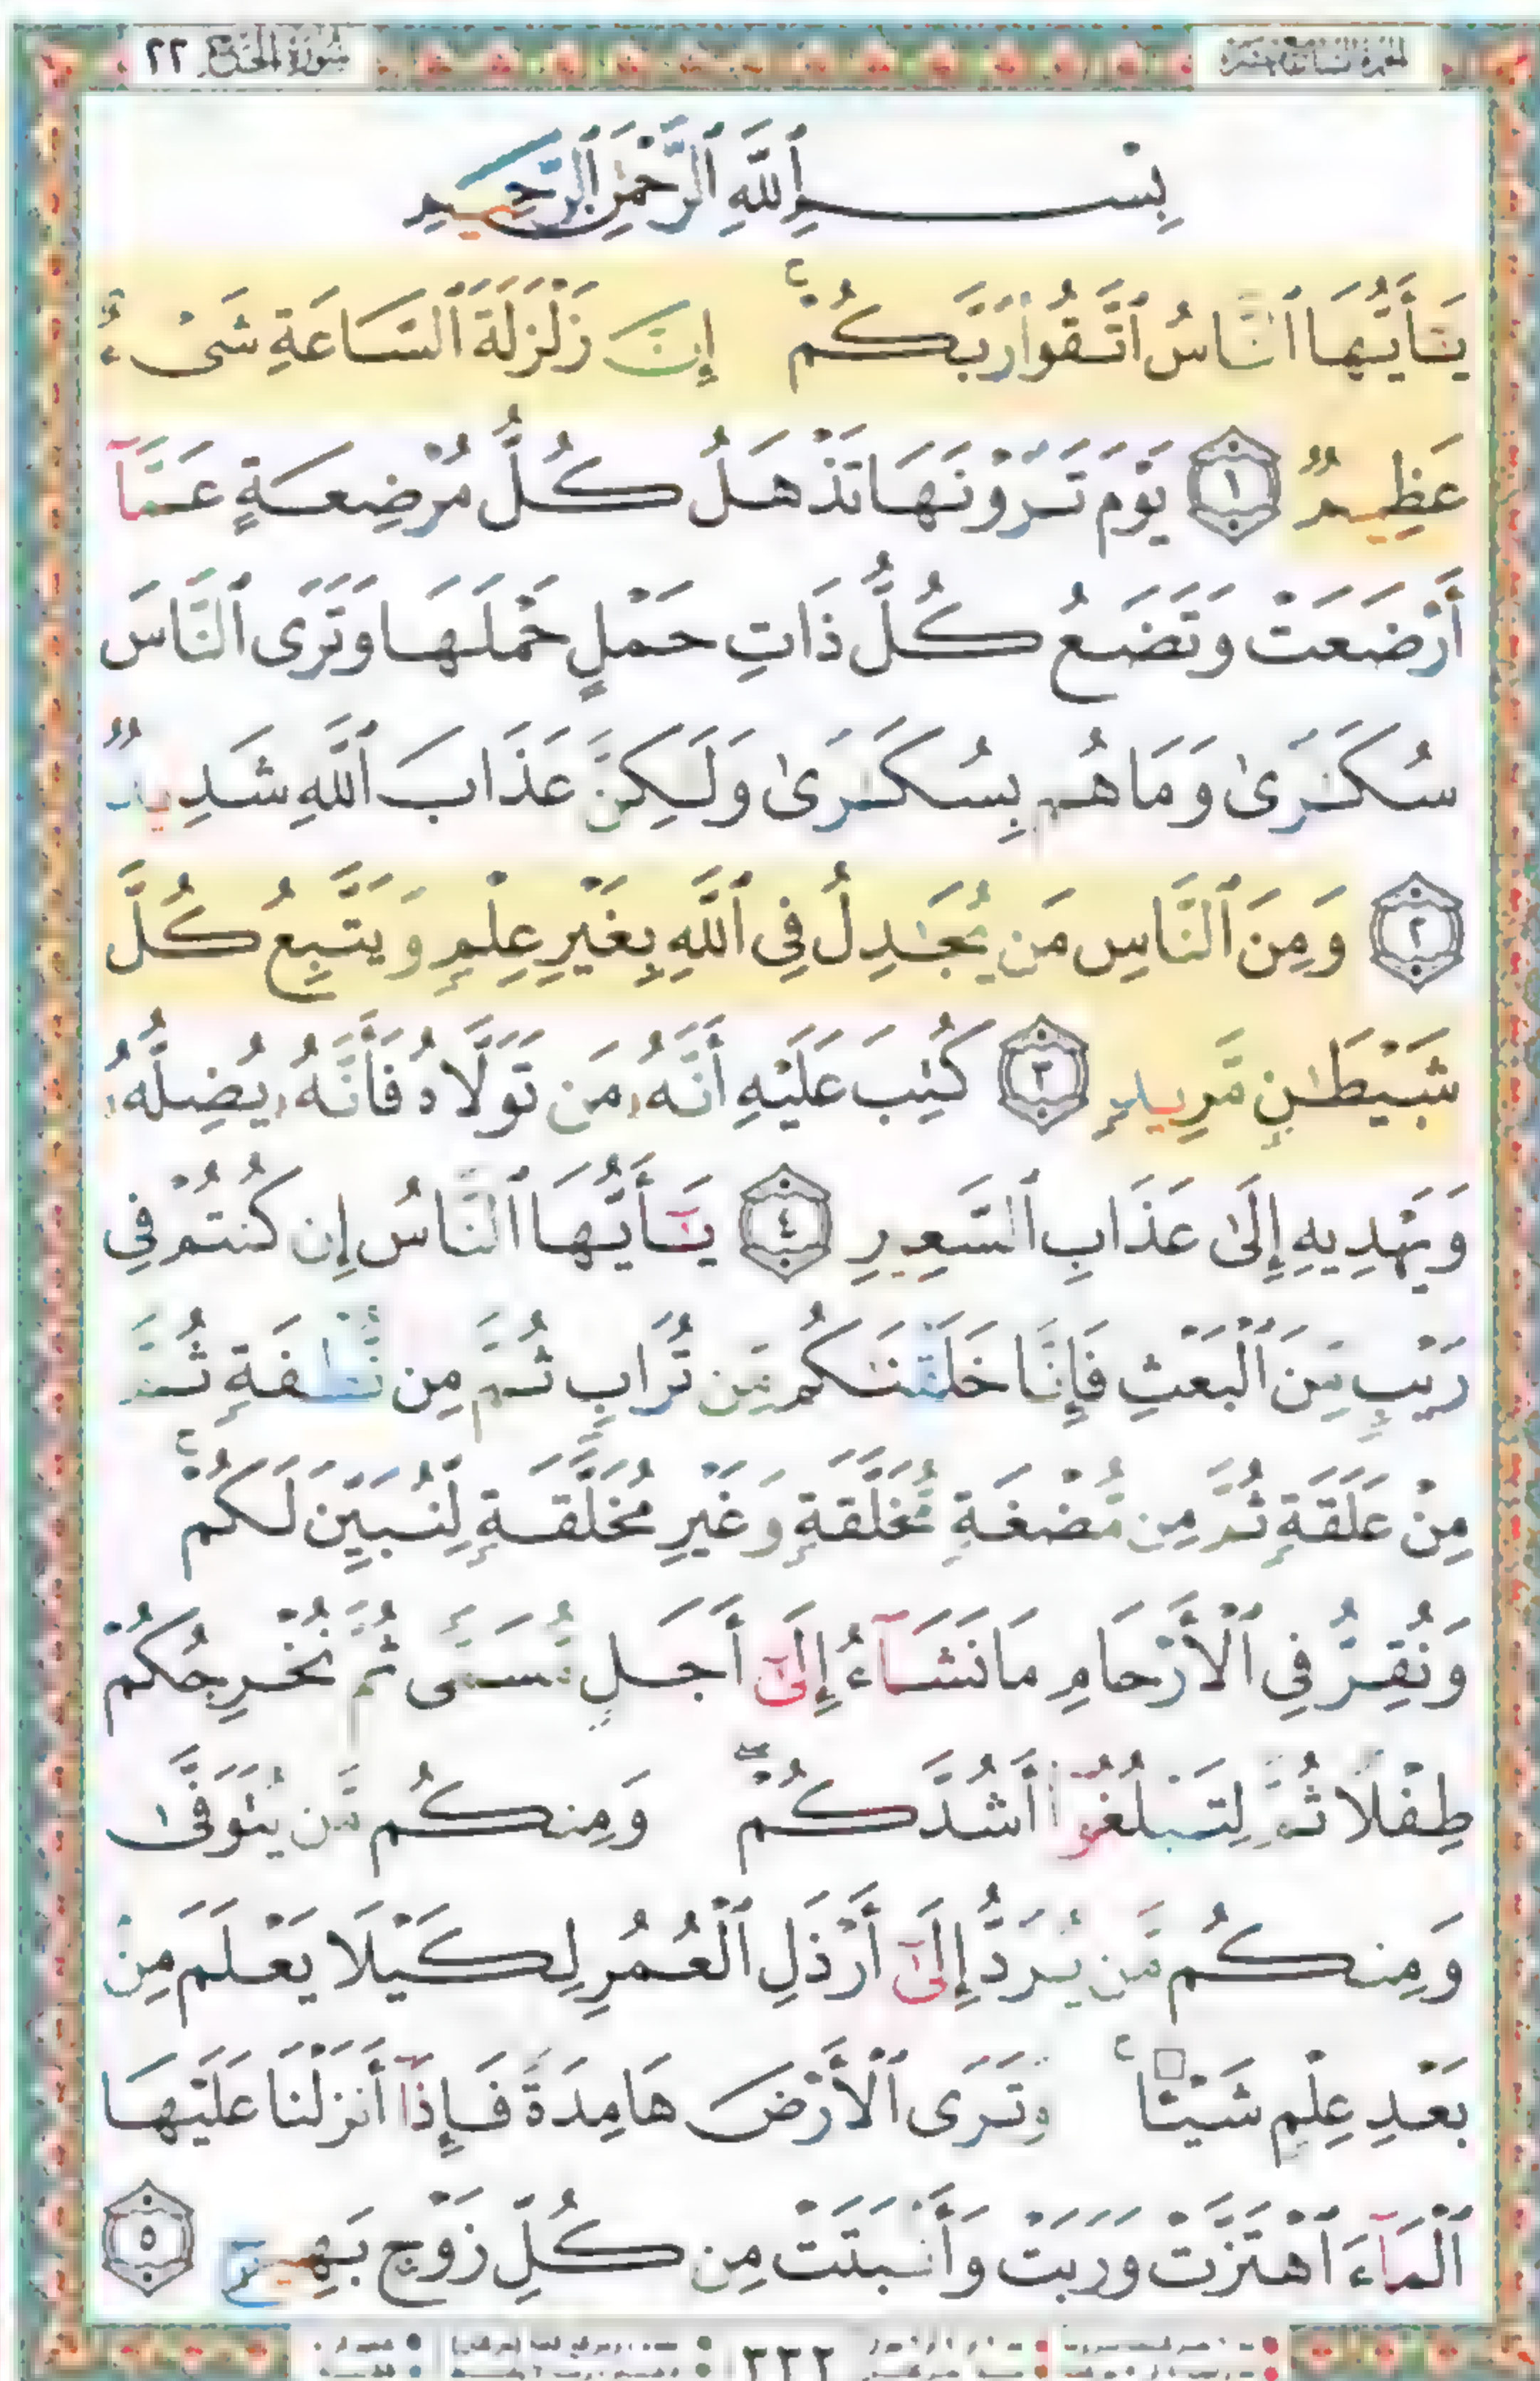 سُورَةُ الحَجِّ ٢٢
بِسْمِ ٱللَّهِ ٱلرَّحْمَٰنِ ٱلرَّحِيمِ
يَٰٓأَيُّهَا ٱلنَّاسُ ٱتَّقُوا۟ رَبَّكُمْ ۚ إِنَّ زَلْزَلَةَ ٱلسَّاعَةِ شَىْءٌ
عَظِيمٌ ١ يَوْمَ تَرَوْنَهَا تَذْهَلُ كُلُّ مُرْضِعَةٍ عَمَّآ
أَرْضَعَتْ وَتَضَعُ كُلُّ ذَاتِ حَمْلٍ حَمْلَهَا وَتَرَى ٱلنَّاسَ
سُكَٰرَىٰ وَمَا هُم بِسُكَٰرَىٰ وَلَٰكِنَّ عَذَابَ ٱللَّهِ شَدِيدٌ
٢ وَمِنَ ٱلنَّاسِ مَن يُجَٰدِلُ فِى ٱللَّهِ بِغَيْرِ عِلْمٍ وَيَتَّبِعُ كُلَّ
شَيْطَٰنٍ مَّرِيدٍ ٣ كُتِبَ عَلَيْهِ أَنَّهُۥ مَن تَوَلَّاهُ فَأَنَّهُۥ يُضِلُّهُۥ
وَيَهْدِيهِ إِلَىٰ عَذَابِ ٱلسَّعِيرِ ٤ يَٰٓأَيُّهَا ٱلنَّاسُ إِن كُنتُمْ فِى
رَيْبٍ مِّنَ ٱلْبَعْثِ فَإِنَّا خَلَقْنَٰكُم مِّن تُرَابٍ ثُمَّ مِن نُّطْفَةٍ ثُمَّ
مِنْ عَلَقَةٍ ثُمَّ مِن مُّضْغَةٍ مُّخَلَّقَةٍ وَغَيْرِ مُخَلَّقَةٍ لِّنُبَيِّنَ لَكُمْ ۚ
وَنُقِرُّ فِى ٱلْأَرْحَامِ مَا نَشَآءُ إِلَىٰٓ أَجَلٍ مُّسَمًّى ثُمَّ نُخْرِجُكُمْ
طِفْلًا ثُمَّ لِتَبْلُغُوٓا۟ أَشُدَّكُمْ ۖ وَمِنكُم مَّن يُتَوَفَّىٰ
وَمِنكُم مَّن يُرَدُّ إِلَىٰٓ أَرْذَلِ ٱلْعُمُرِ لِكَيْلَا يَعْلَمَ مِنۢ
بَعْدِ عِلْمٍ شَيْـًٔا ۚ وَتَرَى ٱلْأَرْضَ هَامِدَةً فَإِذَآ أَنزَلْنَا عَلَيْهَا
ٱلْمَآءَ ٱهْتَزَّتْ وَرَبَتْ وَأَنۢبَتَتْ مِن كُلِّ زَوْجٍۭ بَهِيجٍ ٥
٣٣٢